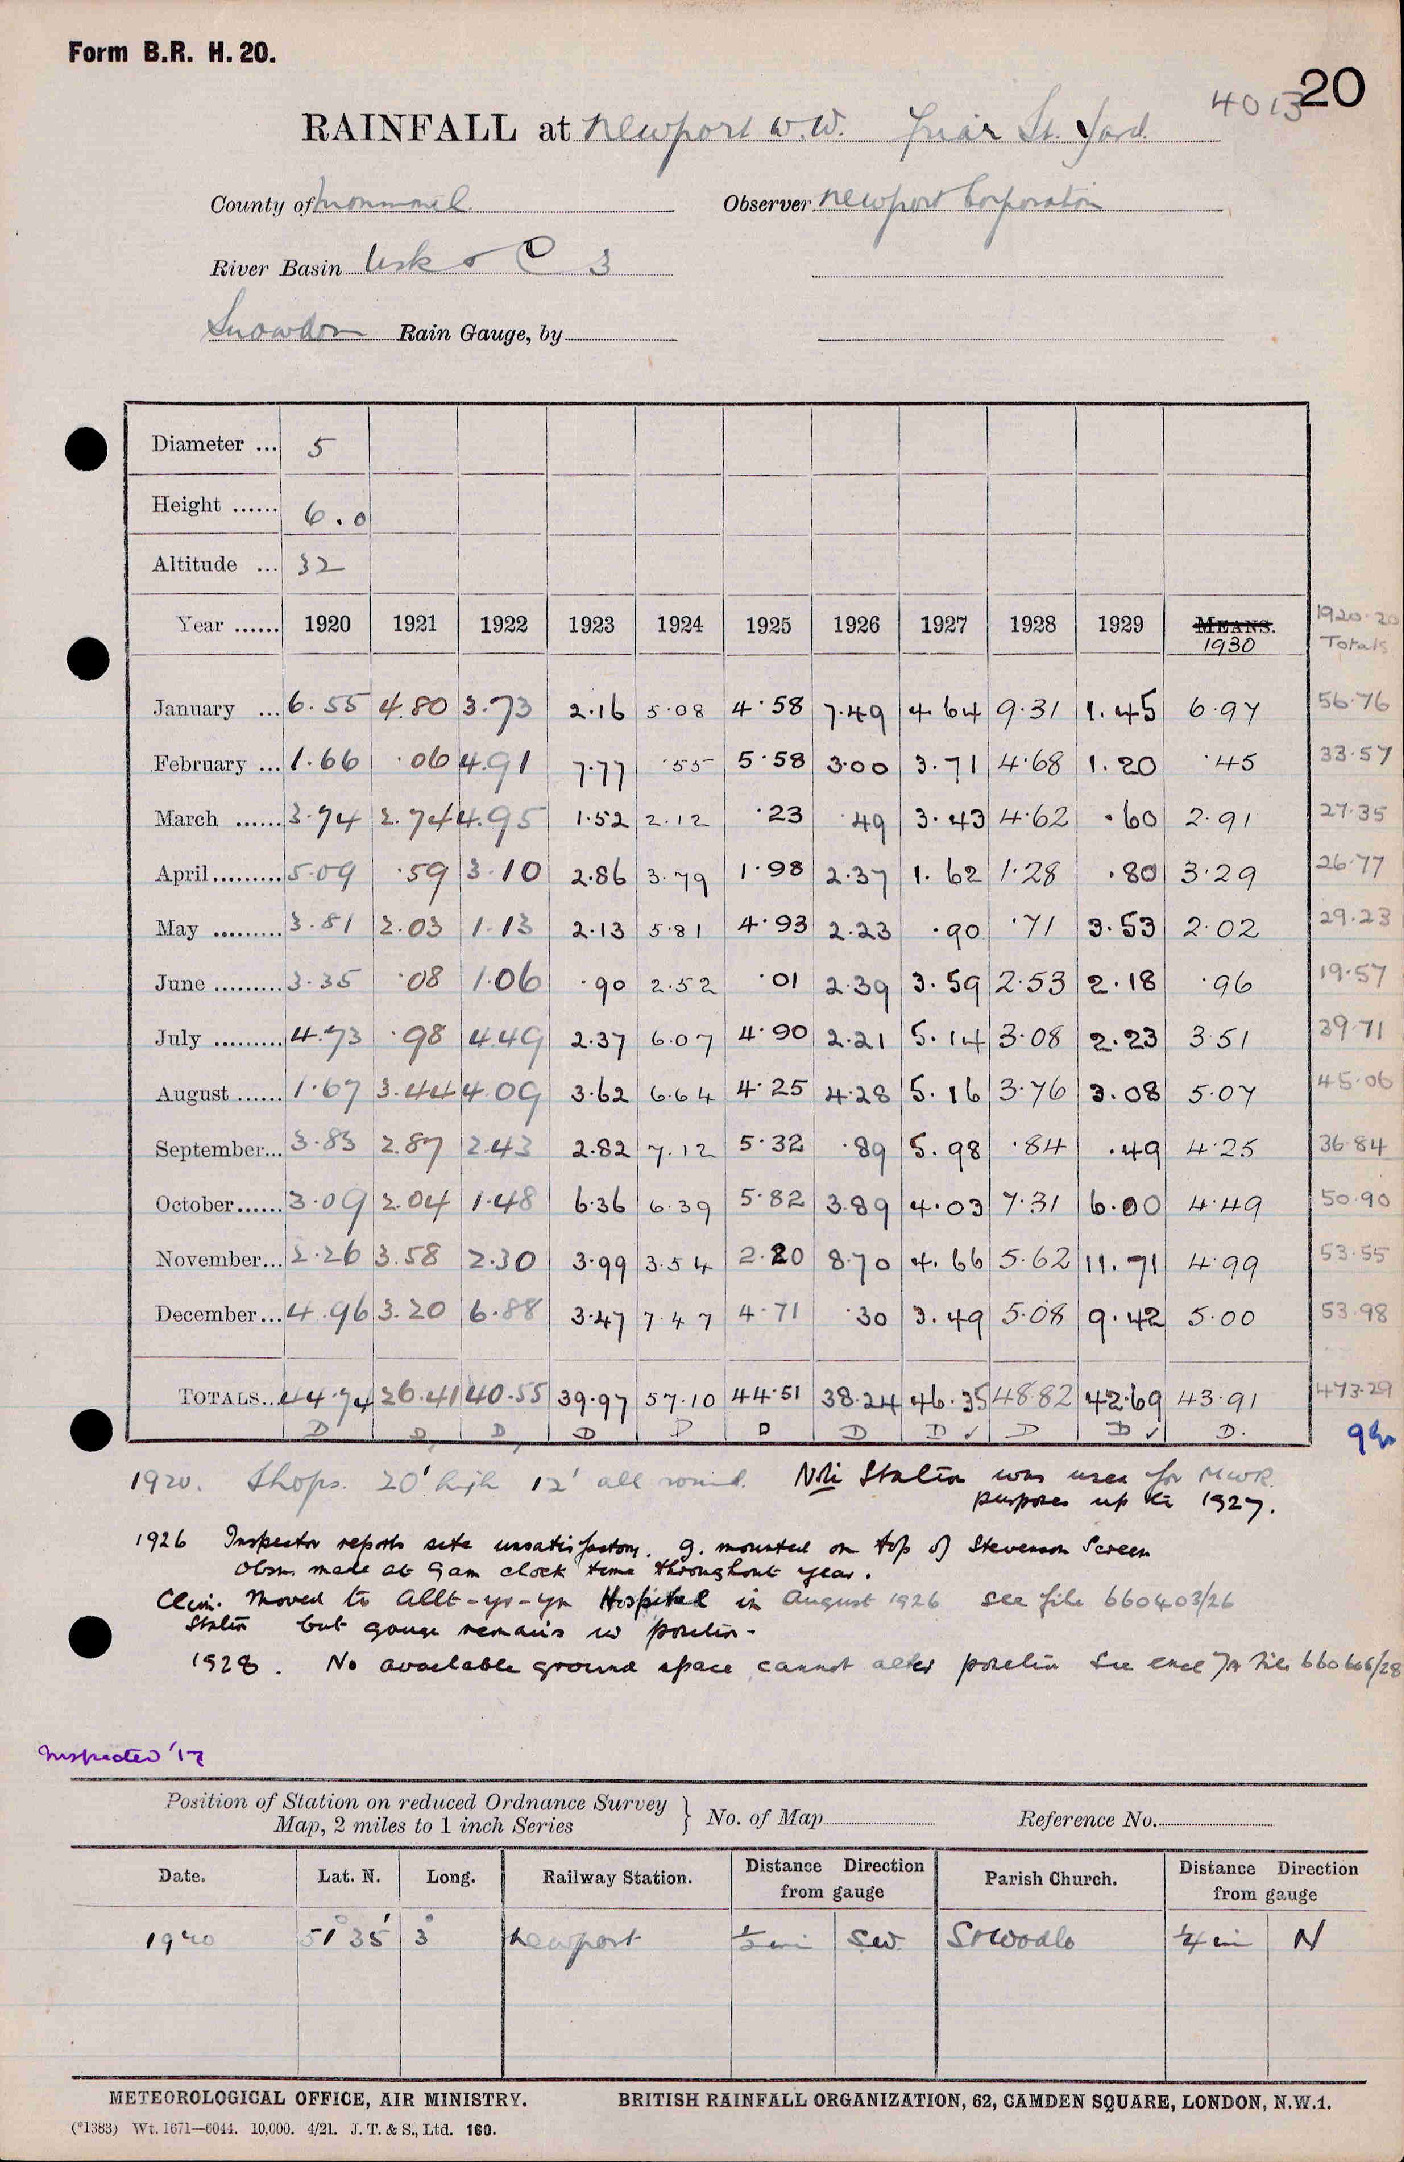 Form B.R. H. 20.
20
4013
RAINFALL at Newport W.W. Friar St. Yard.
County of Monmouth Observer Newport Corporation
River Basin Usk & C 3
Snowdon Rain Gauge, by
Diameter ... 5
Height ...... 6.0
Altitude ... 32
Year ...... 1920 1921 1922 1923 1924 1925 1926 1927 1928 1929 MEANS. 1930 1920-30 Totals
January ... 6.55 4.80 3.73 2.16 5.08 4.58 7.49 4.64 9.31 1.45 6.97 56.76
February ... 1.66 .06 4.91 7.77 .55 5.58 3.00 3.71 4.68 1.20 .45 33.57
March ...... 3.74 2.74 4.95 1.52 2.12 .23 .49 3.43 4.62 .60 2.91 27.35
April......... 5.09 .59 3.10 2.86 3.79 1.98 2.37 1.62 1.28 .80 3.29 26.77
May ......... 3.81 2.03 1.13 2.13 5.81 4.93 2.23 .90 .71 3.53 2.02 29.23
June ......... 3.35 .08 1.06 .90 2.52 .01 2.39 3.59 2.53 2.18 .96 19.57
July ......... 4.73 .98 4.49 2.37 6.07 4.90 2.21 5.14 3.08 2.23 3.51 39.71
August ...... 1.67 3.44 4.09 3.62 6.64 4.25 4.28 5.16 3.76 3.08 5.07 45.06
September... 3.83 2.87 2.43 2.82 7.12 5.32 .89 5.98 .84 .49 4.25 36.84
October...... 3.09 2.04 1.48 6.36 6.39 5.82 3.89 4.03 7.31 6.00 4.49 50.90
November... 2.26 3.58 2.30 3.99 3.54 2.20 8.70 4.66 5.62 11.71 4.99 53.55
December... 4.96 3.20 6.88 3.47 7.47 4.71 .30 3.49 5.08 9.42 5.00 53.98
TOTALS... 44.74 26.41 40.55 39.97 57.10 44.51 38.24 46.35 48.82 42.69 43.91 473.29
D D, D, D D D D D ✓ D D ✓ D.
1920. Shops. 20' high 12' all round. Note Station was used for MWR
purposes up to 1927.
1926 Inspector reports site unsatisfactory. g. mounted on top of Stevenson Screen
Obsns. made at 9am clock time throughout year.
Clim. Moved to Allt-yr-yn Hospital in August 1926 see file 660403/26
Station but gauge remains in position.
1928. No available ground space cannot alter position See encl 7A File 660606/28
Inspected '17
Position of Station on reduced Ordnance Survey
Map, 2 miles to 1 inch Series } No. of Map Reference No.
Date. Lat. N. Long. Railway Station. Distance Direction from gauge Parish Church. Distance Direction from gauge
1920 51° 35' 3° Newport ½ mi SW. St Woolo ¼ mi N
METEOROLOGICAL OFFICE, AIR MINISTRY. BRITISH RAINFALL ORGANIZATION, 62, CAMDEN SQUARE, LONDON, N.W.1.
(*1383) Wt. 1671—6044. 10,000. 4/21. J. T. & S., Ltd. 160.